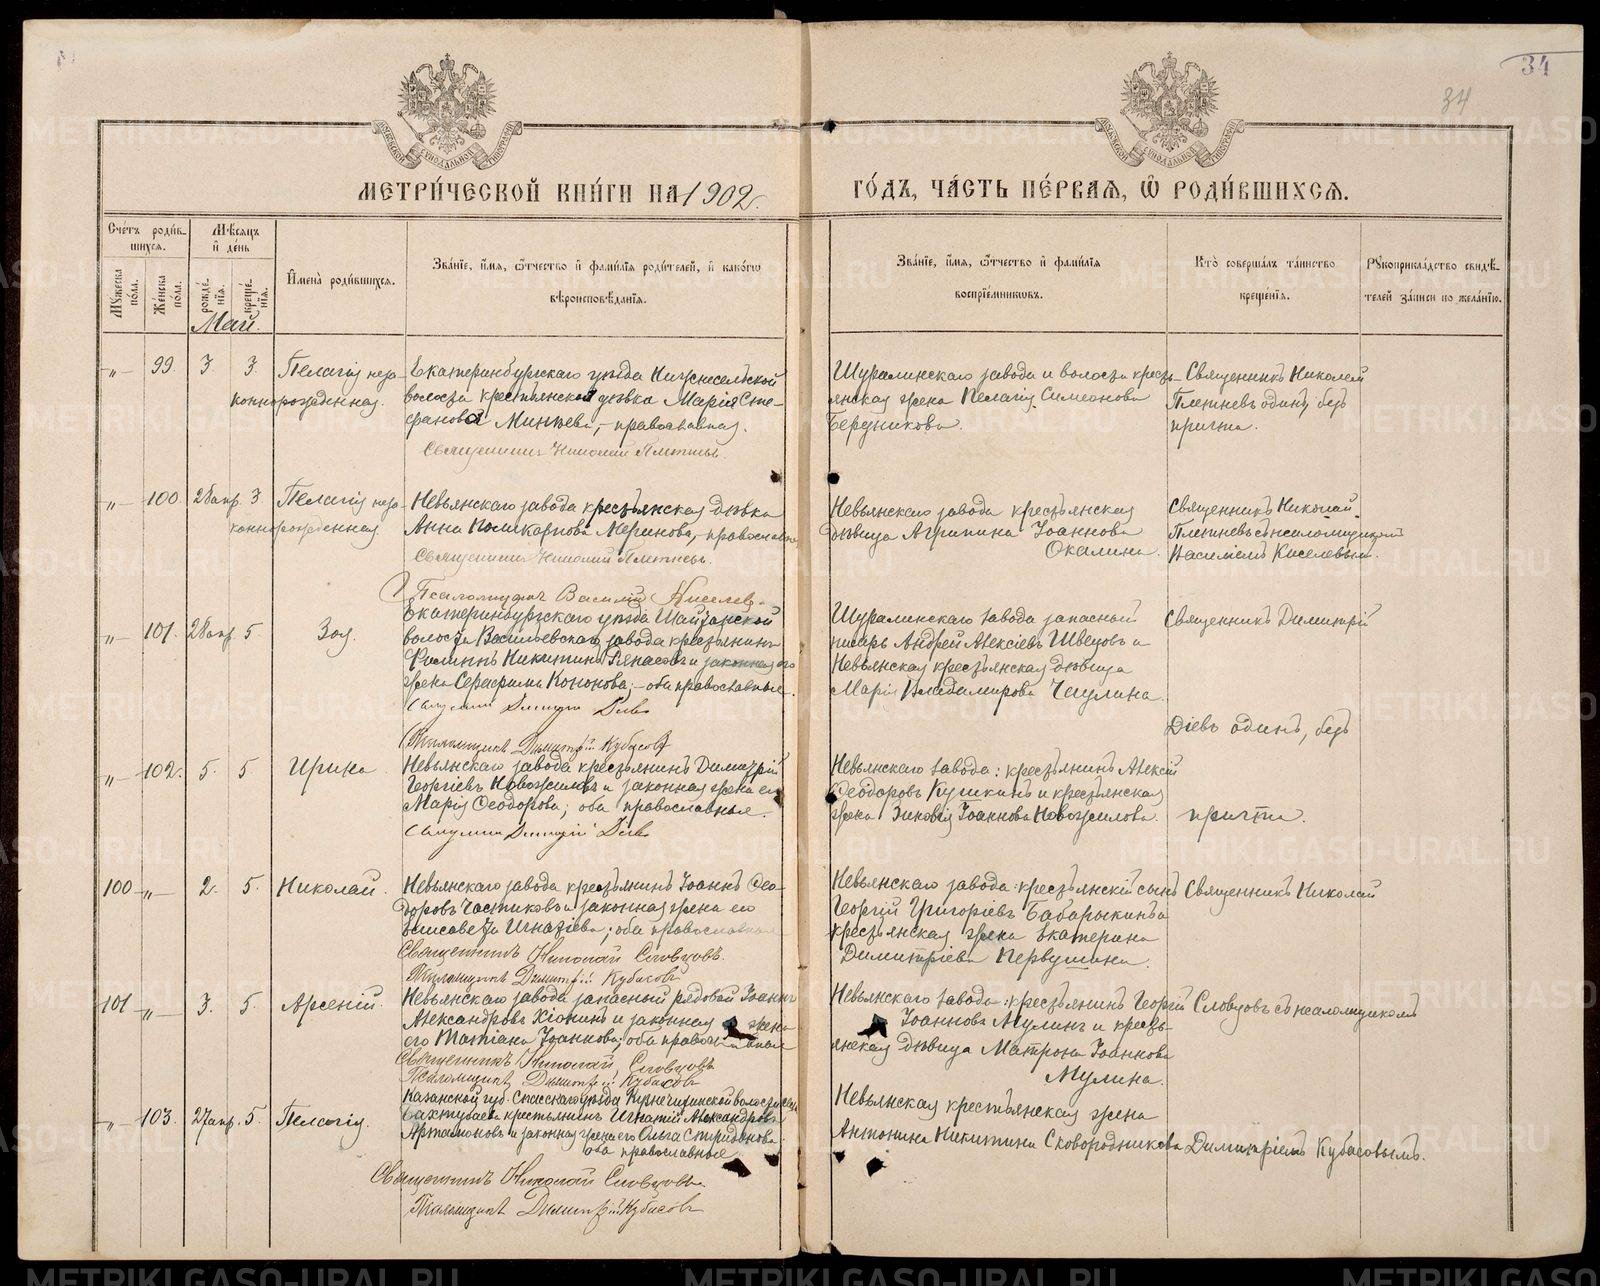 34
34
МЕТРИ́ЧЕСКОЙ КНИ́ГИ НА 1902 г.
ГО́ДЪ, ЧА́СТЬ ПЕ́РВАѦ, Ѿ РОДИ́ВШИХСѦ.
Сче́тъ роди́в-
шихсѧ.
Мѣ́сѧцъ
и де́нь
Мꙋ́жеска по́ла.
Же́нска по́ла.
рожде́нїѧ.
креще́нїѧ.
Имена̀ роди́вшихсѧ.
Зва́нїе, и́мѧ, ѻ́тчество и фами́лїѧ роди́телей, и како́гѡ
вѣроисповѣ́данїѧ.
Зва́нїе, и́мѧ, ѻ́тчество и фами́лїѧ
воспрїе́мниковъ.
Кто̀ соверша́лъ та́инство
креще́нїѧ.
Рꙋкоприкла́дство свидѣ́-
телей за́писи по жела́нїю.
Май.
-„- 99 3 3. Пелагія неза-
коннорожденная.
Екатеринбургскаго уѣзда Нижнесельской
волости крестьянская дѣвка Марія Сте-
фанова Минѣева, - православная.
Священникъ Николай Плетневъ.
Шуралинскаго завода и волости кресть-
янская жена Пелагія Симеонова
Бердникова.
Священникъ Николай
Плетневъ одинъ, безъ
причта.
-„- 100. 28 апр. 3. Пелагія неза-
коннорожденная
Невьянскаго завода крестьянская дѣвка
Анна Поликарпова Меринова, православная
Священникъ Николай Плетневъ.
Псаломщикъ Василій Киселевъ.
Невьянскаго завода крестьянская
дѣвица Агрипина Іоаннова
Окалина.
Священникъ Николай
Плетневъ съ псаломщикомъ
Василіемъ Киселевымъ.
-„- 101. 28 апр. 5. Зоя.
Екатеринбургскаго уѣзда Шайтанской
волости Васильевскаго завода крестьянинъ
Филиппъ Никитинъ и законная его
жена Серафима Кононова, - оба православные.
Священникъ Димитрій Діевъ
Псаломщикъ Димитрій Кубасовъ
Шуралинскаго завода запасный
писарь Андрей Алексіевъ Швецовъ и
Невьянская крестьянская дѣвица
Марія Владимирова Чаулина.
Священникъ Димитрій
Діевъ одинъ, безъ
-„- 102. 5. 5. Ирина
Невьянскаго завода крестьянинъ Димитрій
Георгіевъ Новожиловъ и законная жена его
Марія Ѳеодорова; оба православные.
Священникъ Димитрій Діевъ
Невьянскаго завода: крестьянинъ Алексій
Ѳеодоровъ Кушкинъ и крестьянская
жена Зиновія Іоаннова Новожилова.
причта.
100 -„- 2. 5. Николай.
Невьянскаго завода крестьянинъ Іоаннъ Ѳео-
доровъ Частиковъ и законная жена его
Елисавета Игнатіева; оба православные
Священникъ Николай Словцовъ.
Псаломщикъ Димитрій Кубасовъ
Невьянскаго завода: крестьянскій сынъ
Георгій Григоріевъ Бабарыкинъ и
крестьянская жена Екатерина
Димитріева Первушина.
Священникъ Николай
101 -„- 3. 5. Арсеній.
Невьянскаго завода запасный рядовой Іоаннъ
Александровъ Хіонинъ и законная жена
его Татіана Іоаннова, оба православные
Священникъ Николай Словцовъ
Псаломщикъ Димитрій Кубасовъ
Невьянскаго завода: крестьянинъ Георгій
Іоанновъ Мулинъ и кресть-
янская дѣвица Матрона Іоаннова
Мулина.
Словцовъ съ псаломщикомъ
-„- 103. 27 апр. 5. Пелагія.
Казанской губ. Спасскаго уѣзда Кузнечихинской волости села
крестьянинъ Игнатій Александровъ
Артамоновъ и законная жена его Ольга Спиридонова.
оба православные
Священникъ Николай Словцовъ.
Псаломщикъ Димитрій Кубасовъ
Невьянская крестьянская жена
Антонина Никитина Сковородникова
Димитріемъ Кубасовымъ.